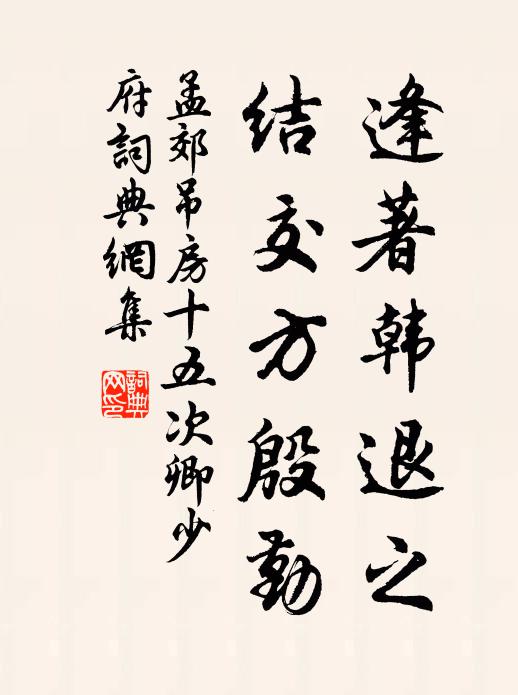 逢著韓退之
結交方殷勤
孟郊吊房十五次卿少
府詞典網集
詞典
网印